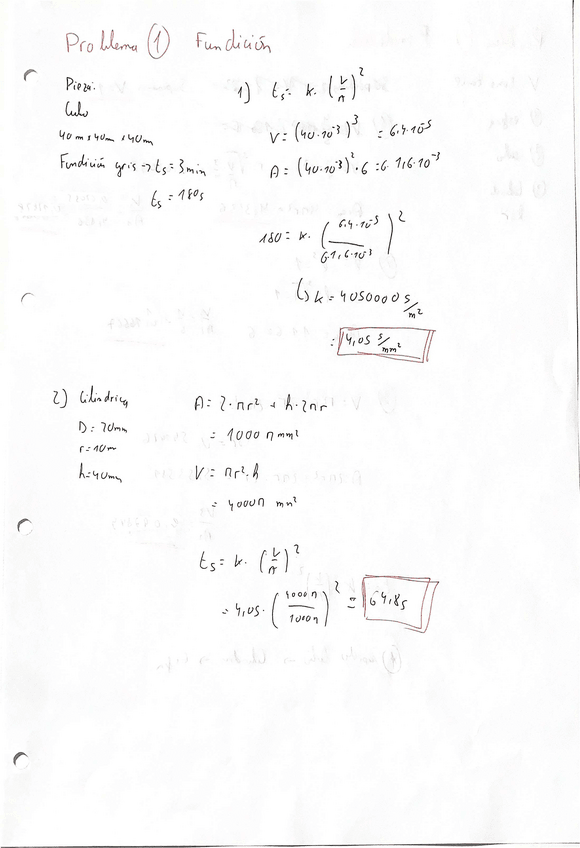 Problema 1 Fundición
Pieza:
Cubo
40mm x 40mm x 40mm
Fundición gris → ts = 3min
ts = 180s
1) ts = k · (V/A)²
V = (40·10⁻³)³ = 6,4·10⁻⁵
A = (40·10⁻³)² · 6 = 6·1,6·10⁻³
180 = k · (6,4·10⁻⁵ / 6·1,6·10⁻³)²
↳ k = 4050000 s/m²
= 4,05 s/mm²
2) Cilíndrica
D = 20mm
r = 10m
h = 40mm
A = 2·πr² + h·2πr
= 1000 π mm²
V = πr²·h
= 4000π mm²
ts = k · (V/A)²
= 4,05 · (4000π / 1000π)² = 64,8s